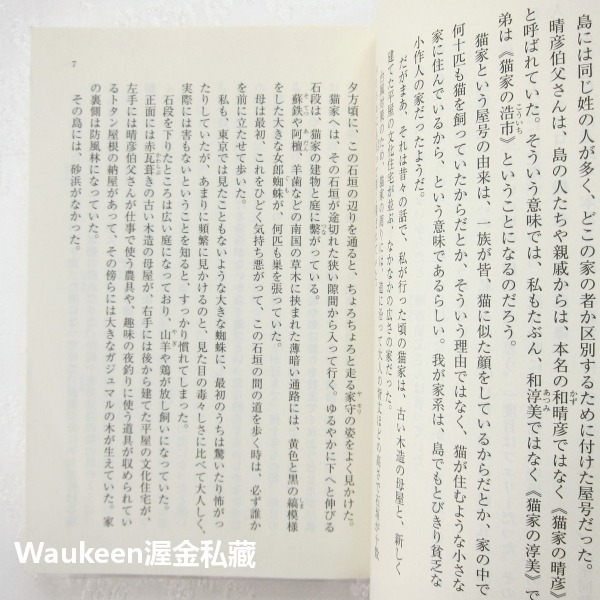 島には同じ姓の人が多く、どこの家の者か区別するために付けた屋号だった。
晴彦伯父さんは、島の人たちや親戚からは、本名の和晴彦ではなく《猫家の晴彦》
と呼ばれていた。そういう意味では、私もたぶん、和淳美ではなく《猫家の淳美》で
弟は《猫家の浩市》ということになるのだろう。
猫家という屋号の由来は、一族が皆、猫に似た顔をしているからだとか、家の中で
何十匹も猫を飼っていたからだとか、そういう理由ではなく、猫が住むような小さな
家に住んでいるから、という意味であるらしい。我が家系は、島でもとびきり貧乏な
小作人の家だったようだ。
だがまあ、それは昔々の話で、私が行った頃の猫家は、古い木造の母屋と、新しく
建てた平屋の文化住宅が並ぶ、なかなかの広さの家だった。
夕方頃に、この石垣の辺りを通ると、ちょろちょろと走る家守の姿をよく見かけた。
猫家へは、その石垣が途切れた狭い隙間から入って行く。ゆるやかに下へと伸びる
石段は、猫家の建物と庭に繋がっている。
蘇鉄や阿檀、羊歯などの南国の草木に挟まれた薄暗い通路には、黄色と黒の縞模様
をした大きな女郎蜘蛛が、何匹も巣を張っていた。
母は最初、これをひどく気持ち悪がって、この石垣の間の道を歩く時は、必ず誰か
を前に立たせて歩いた。
私も、東京では見たこともないような大きな蜘蛛に、最初のうちは驚いたり怖がっ
たりしていたが、あまりに頻繁に見かけるのと、見た目の毒々しさに比べて大人しく、
実際には害もないということを知ると、すっかり慣れてしまった。
石段を下りたところは広い庭になっており、山羊や鶏が放し飼いになっていた。
正面には赤瓦葺きの古い木造の母屋が、右手には後から建てた平屋の文化住宅が、
左手には晴彦伯父さんが仕事で使う農具や、趣味の夜釣りに使う道具が収められてい
るトタン屋根の納屋があって、その傍らには大きなガジュマルの木が生えていた。家
の裏側は防風林になっていた。
その島には、砂浜がなかった。
7
Waukeen渥金私藏